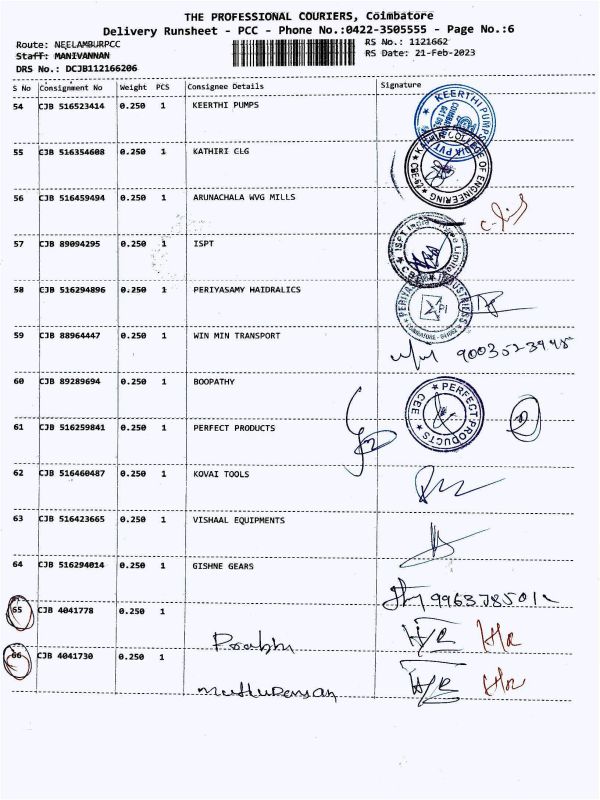 THE PROFESSIONAL COURIERS, Coimbatore
Delivery Runsheet - PCC - Phone No.:0422-3505555 - Page No.:6
Route: NEELAMBURPCC
RS No.: 1121662
Staff: MANIVANNAN
RS Date: 21-Feb-2023
DRS No.: DCJB112166206
S No Consignment No Weight PCS Consignee Details Signature
54 CJB 516523414 0.250 1 KEERTHI PUMPS
55 CJB 516354608 0.250 1 KATHIRI CLG
COLLEGE OF ENGINEERING
56 CJB 516459494 0.250 1 ARUNACHALA WVG MILLS
57 CJB 89094295 0.250 1 ISPT
58 CJB 516294896 0.250 1 PERIYASAMY HAIDRALICS
59 CJB 88964447 0.250 1 WIN MIN TRANSPORT
60 CJB 89289694 0.250 1 BOOPATHY
PERFECT PRODUCTS
CBE
61 CJB 516259841 0.250 1 PERFECT PRODUCTS
62 CJB 516460487 0.250 1 KOVAI TOOLS
63 CJB 516423665 0.250 1 VISHAAL EQUIPMENTS
64 CJB 516294014 0.250 1 GISHNE GEARS
65 CJB 4041778 0.250 1
Prabhu H/R H/R
66 CJB 4041730 0.250 1
H/R H/R